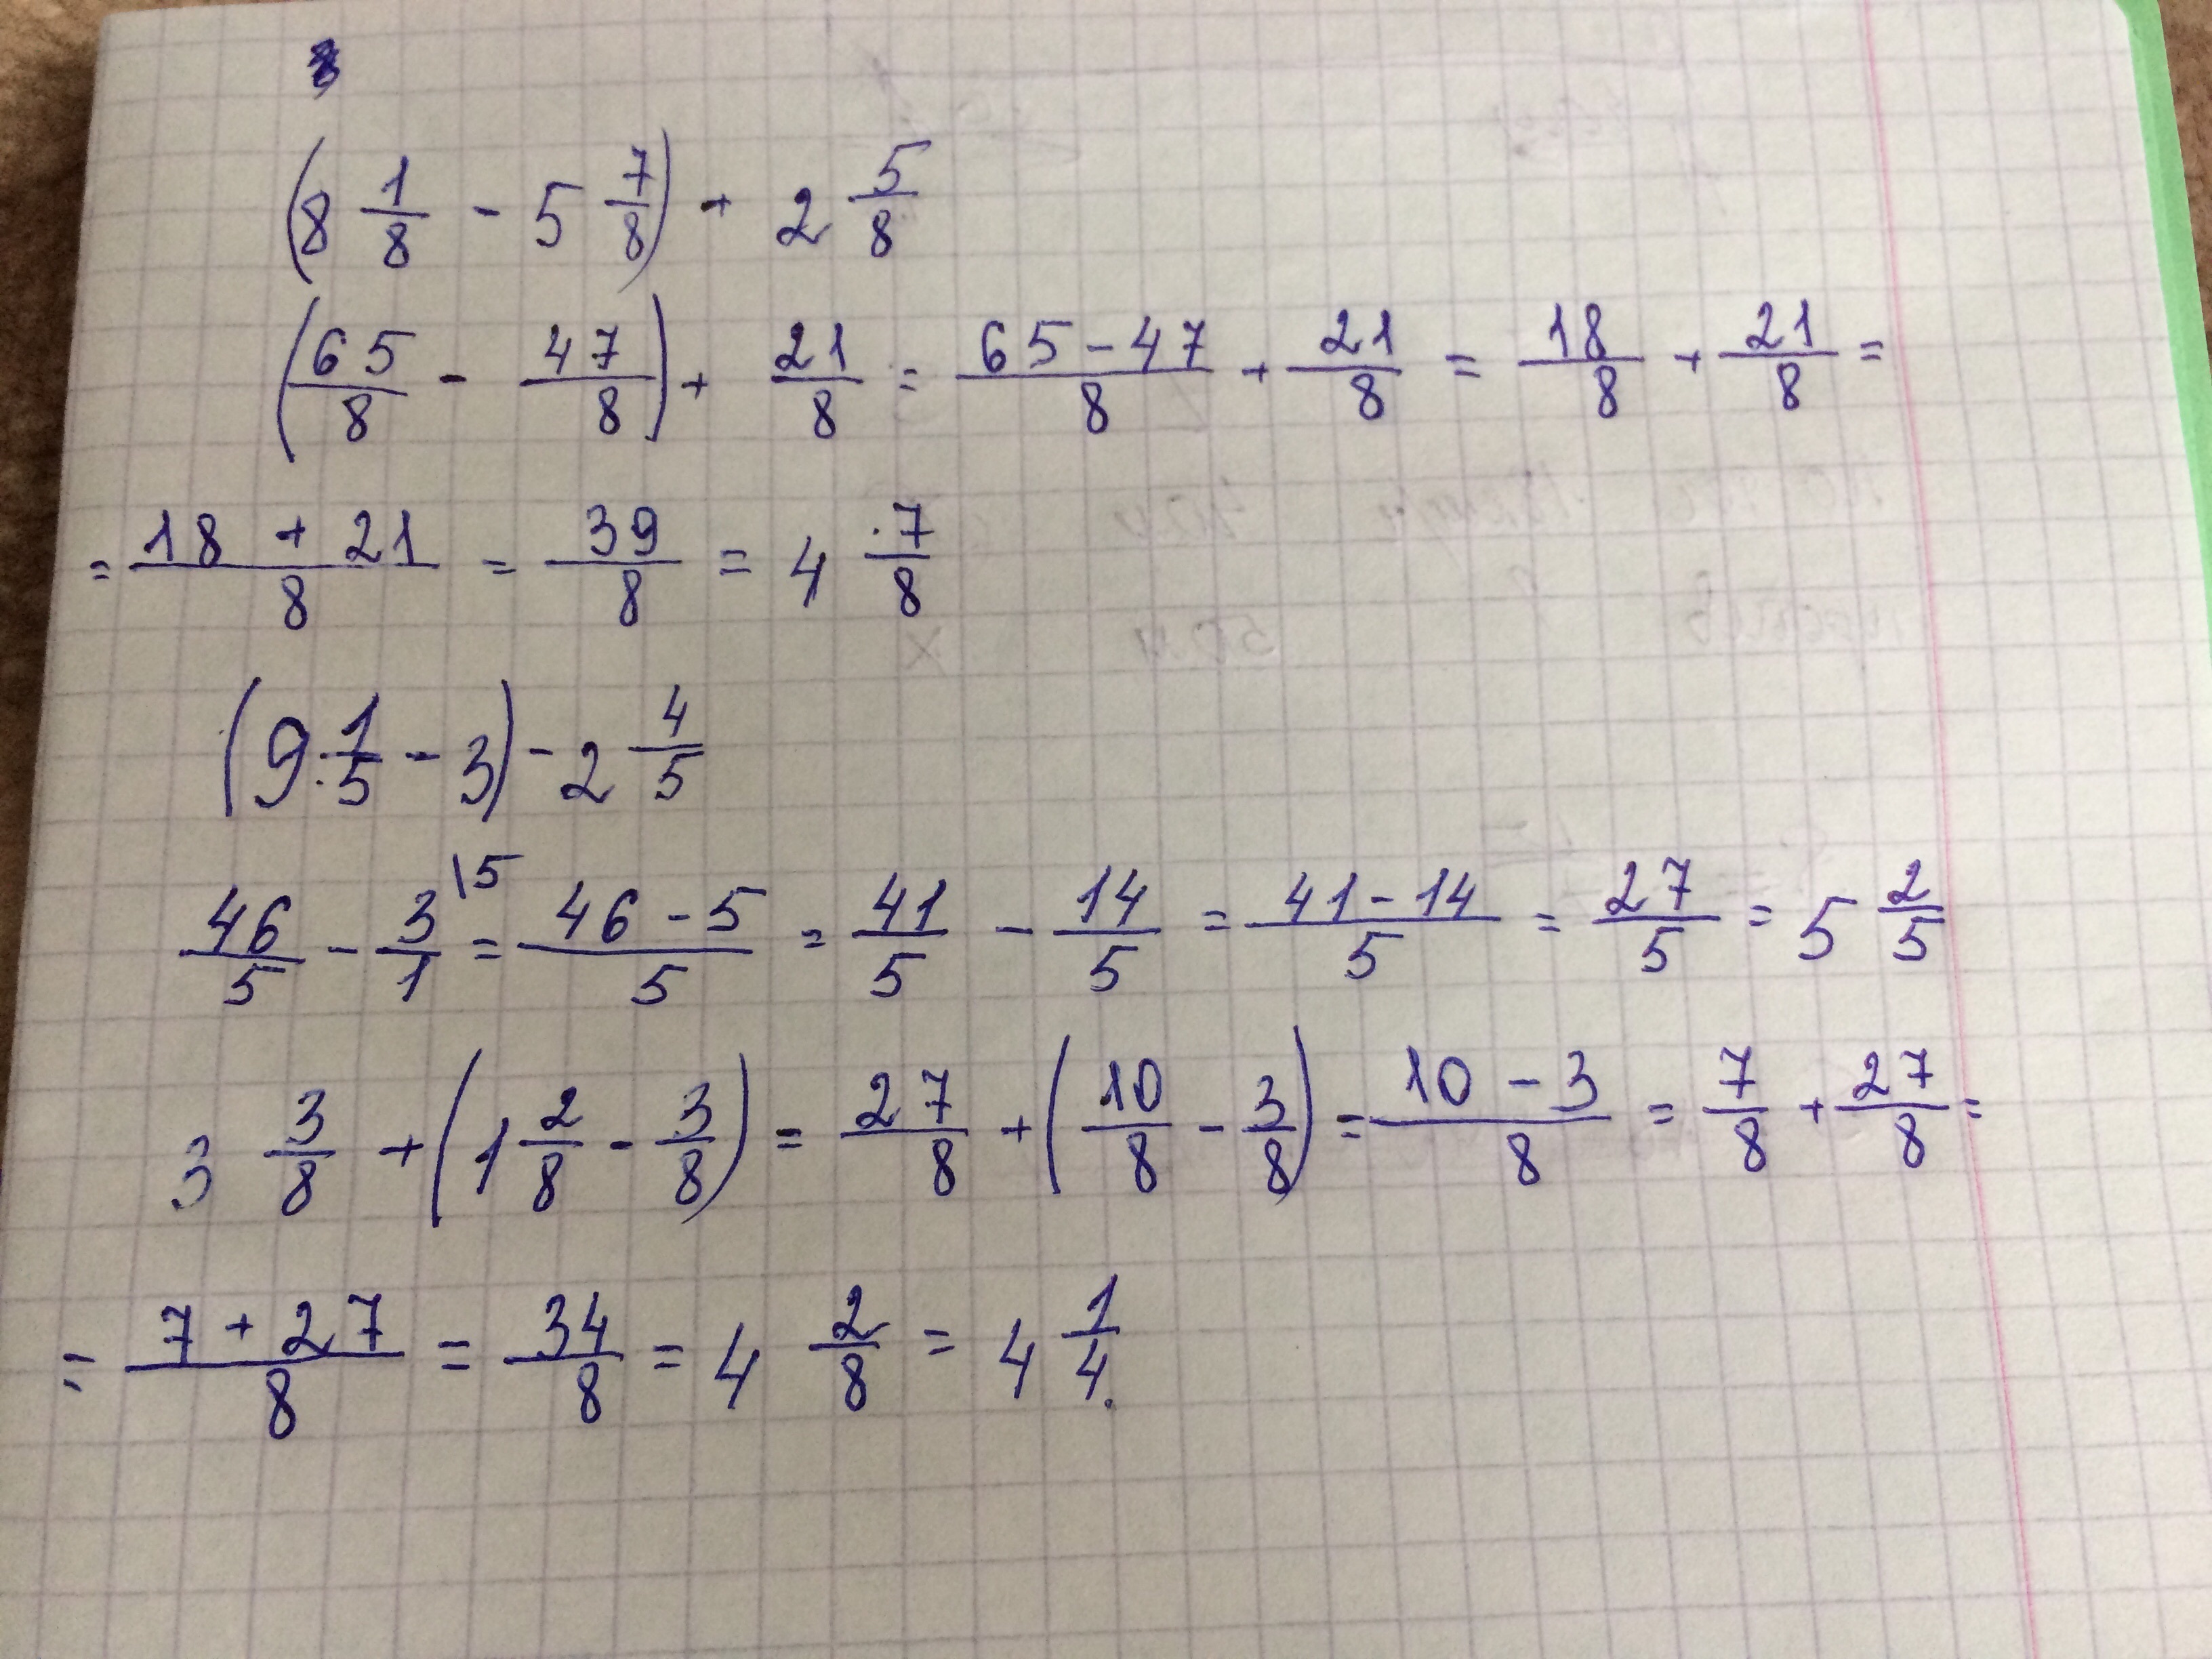 (8 1/8 - 5 7/8) + 2 5/8
(65/8 - 47/8) + 21/8 = 65-47/8 + 21/8 = 18/8 + 21/8 =
= 18 + 21/8 = 39/8 = 4 7/8
(9 1/5 - 3) - 2 4/5
46/5 - 3/1 \5 = 46-5/5 = 41/5 - 14/5 = 41-14/5 = 27/5 = 5 2/5
3 3/8 + (1 2/8 - 3/8) = 27/8 + (10/8 - 3/8) = 10-3/8 = 7/8 + 27/8 =
= 7+27/8 = 34/8 = 4 2/8 = 4 1/4.